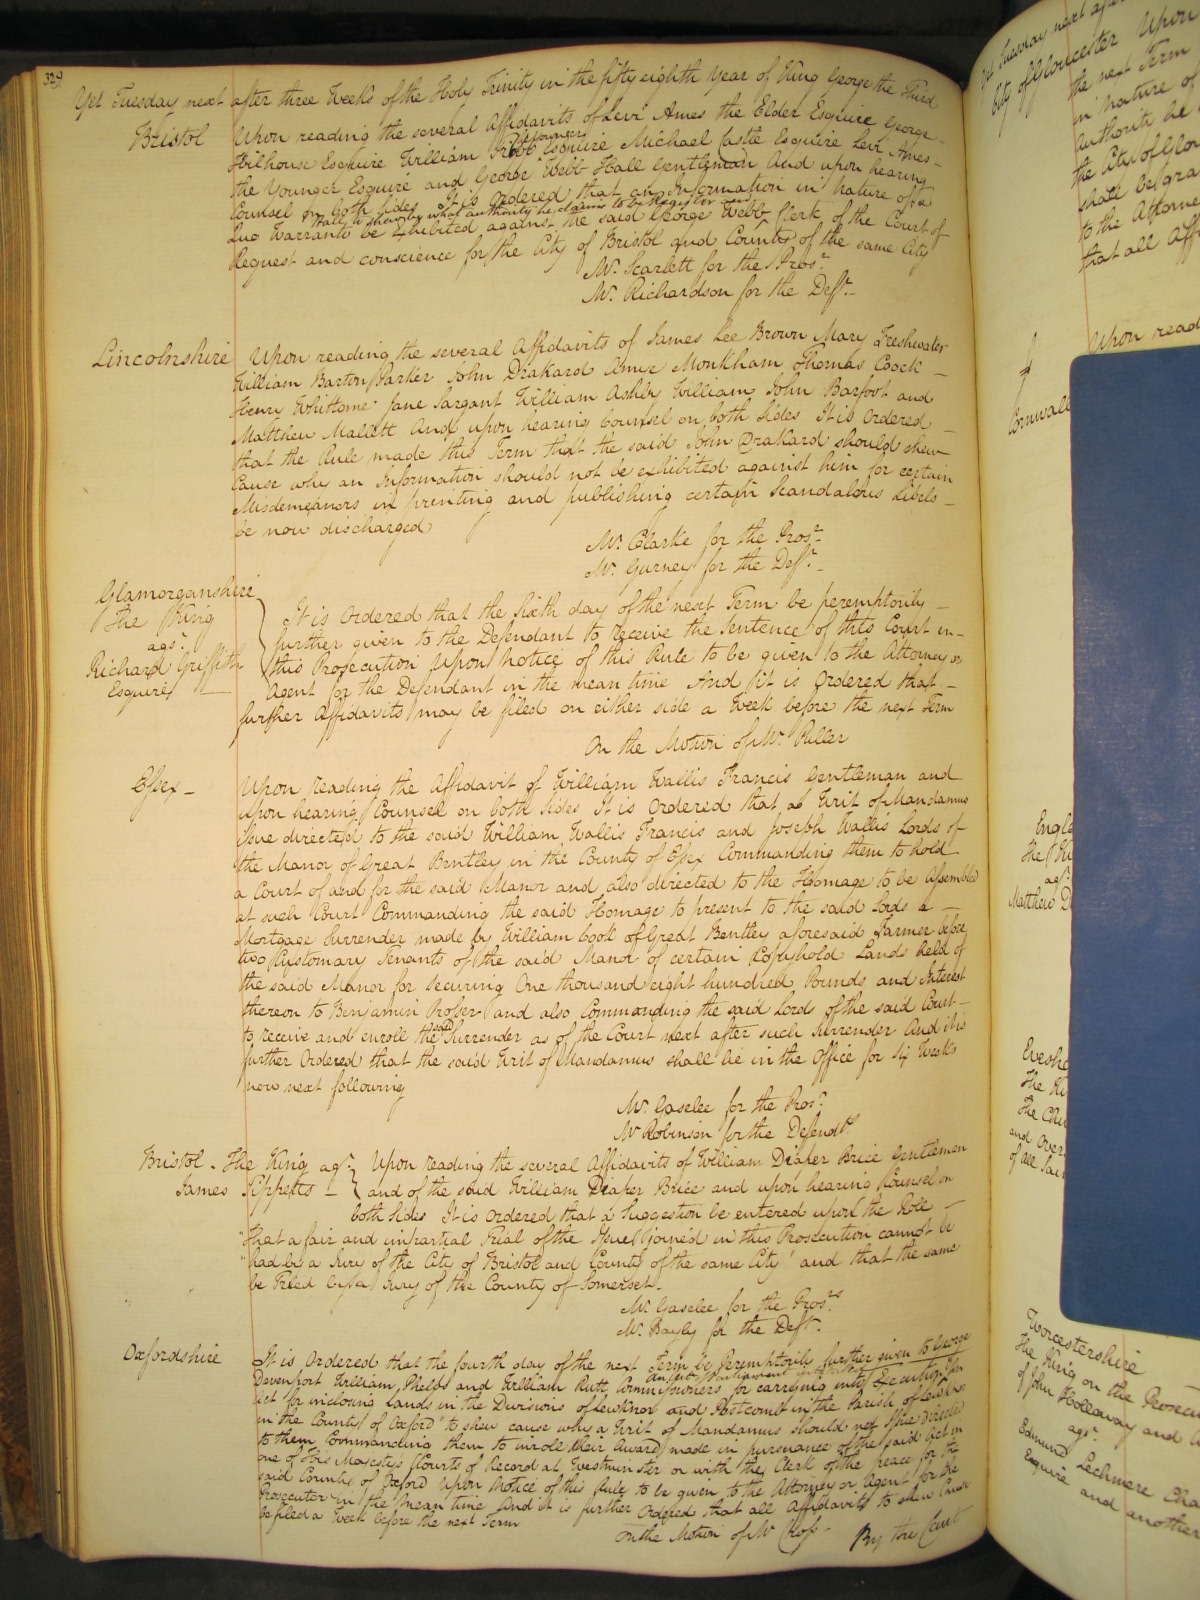 329
Yet Tuesday next after three Weeks of the Holy Trinity in the fifty eighth Year of King George the Third
Bristol
Upon reading the several Affidavits of Levi Ames the Elder Esquire George
Hilhouse Esquire William Esquire Michael Castle Esquire Levi Ames
the Younger Esquire and George Webb Hall Gentleman And upon hearing
Counsel on both sides It is Ordered that an Information in nature of a
to shew by what authority he claims to be Register and
Quo Warranto be exhibited against the said George Webb Clerk of the Court of
Request and conscience for the City of Bristol and County of the same City
Mr. Scarlett for the Prosr.
Mr. Richardson for the Deft.
Lincolnshire
Upon reading the several Affidavits of James Lee Brown Mary Freshwater
William Barton Parker John Drakard Anne Monkham Thomas Coock
Henry Whittome Jane Sargant William Ashby William John Barfoot and
Matthew Mallett And upon hearing Counsel on both sides It is Ordered
that the Rule made this Term that the said John Drakard should shew
Cause why an Information should not be exhibited against him for certain
Misdemeanors in printing and publishing certain Scandalous Libels
be now discharged
Mr. Clarke for the Prosr.
Mr. Gurney for the Deft.
Glamorganshire
The King
agst.
Richard Griffith
Esquire
It is Ordered that the Sixth day of the next Term be peremptorily
further given to the Defendant to receive the Sentence of this Court in
this Prosecution Upon Notice of this Rule to be given to the Attorney or
Agent for the Defendant in the mean time And it is Ordered that
further Affidavits may be filed on either side a Week before the next Term
On the Motion of Mr. Puller
Essex
Upon reading the Affidavit of William Wallis Francis Gentleman and
upon hearing Counsel on both sides It is Ordered that a Writ of Mandamus
Issue directed to the said William Wallis Francis and Joseph Wallis Lords of
the Manor of Great Bentley in the County of Essex Commanding them to hold
a Court of and for the said Manor and also directed to the Homage to be Assembled
at such Court Commanding the said Homage to present to the said Lords a
Mortgage Surrender made by William Cook of Great Bentley aforesaid Farmer before
two Customary Tenants of the said Manor of certain Copyhold Lands held of
the said Manor for securing One thousand eight hundred Pounds and Interest
thereon to Benjamin Prosser and also Commanding the said Lords of the said Court
to receive and enroll the said Surrender as of the Court next after such Surrender And it is
further Ordered that the said Writ of Mandamus shall lie in the Office for Six Weeks
now next following
Mr. Gaselee for the Prosr.
Mr Robinson for the Defendts
Bristol. The King agst.
James Tippetts
Upon reading the several Affidavits of William Diaper Brice Gentleman
and of the said William Diaper Brice and upon hearing Counsel on
both sides It is Ordered that a Suggestion be entered upon the Roll
"that a fair and impartial Trial of the Issue joined in this Prosecution cannot be
"had by a Jury of the City of Bristol and County of the same City" and that the same
be Tried by a Jury of the County of Somerset.
Mr. Gaselee for the Prosrs
Mr. Bayly for the Deft.
Oxfordshire
It is Ordered that the fourth day of the next Term be Peremptorily further given to George
Davenport William Phelds and William Rutt Commissioners for carrying into Execution "An
Act for inclosing Lands in the Divisions of Lewknor and Postcomb in the Parish of Lewknor
in the County of Oxford" to shew cause why a Writ of Mandamus should not Issue directed
to them Commanding them to inroll their Award made in pursuance of the said Act in
one of His Majestys Courts of Record at Westminster or with the Clerk of the peace for the
said County of Oxford Upon Notice of this Rule to be given to the Attorney or Agent for the
Prosecutor in the Mean time And it is further Ordered that all Affidavits to shew Cause
be filed a Week before the next Term
On the Motion of Mr Cross
By the Court
Yet Tuesday next after
City of Gloucester Upon
the next Term
in nature of
Authority he
the City of Glou
shall be gra
to the Attorne
that all Aff
Upon read
Cornwall
Engla
The Ki
agst.
Matthew D
Evesha
The Ki
The Chu
and Over
of All Sai
Worcestershire
The King on the Prosecu
of John Holloway and
agst.
Edmund Lechmere Cha
Esquire and another